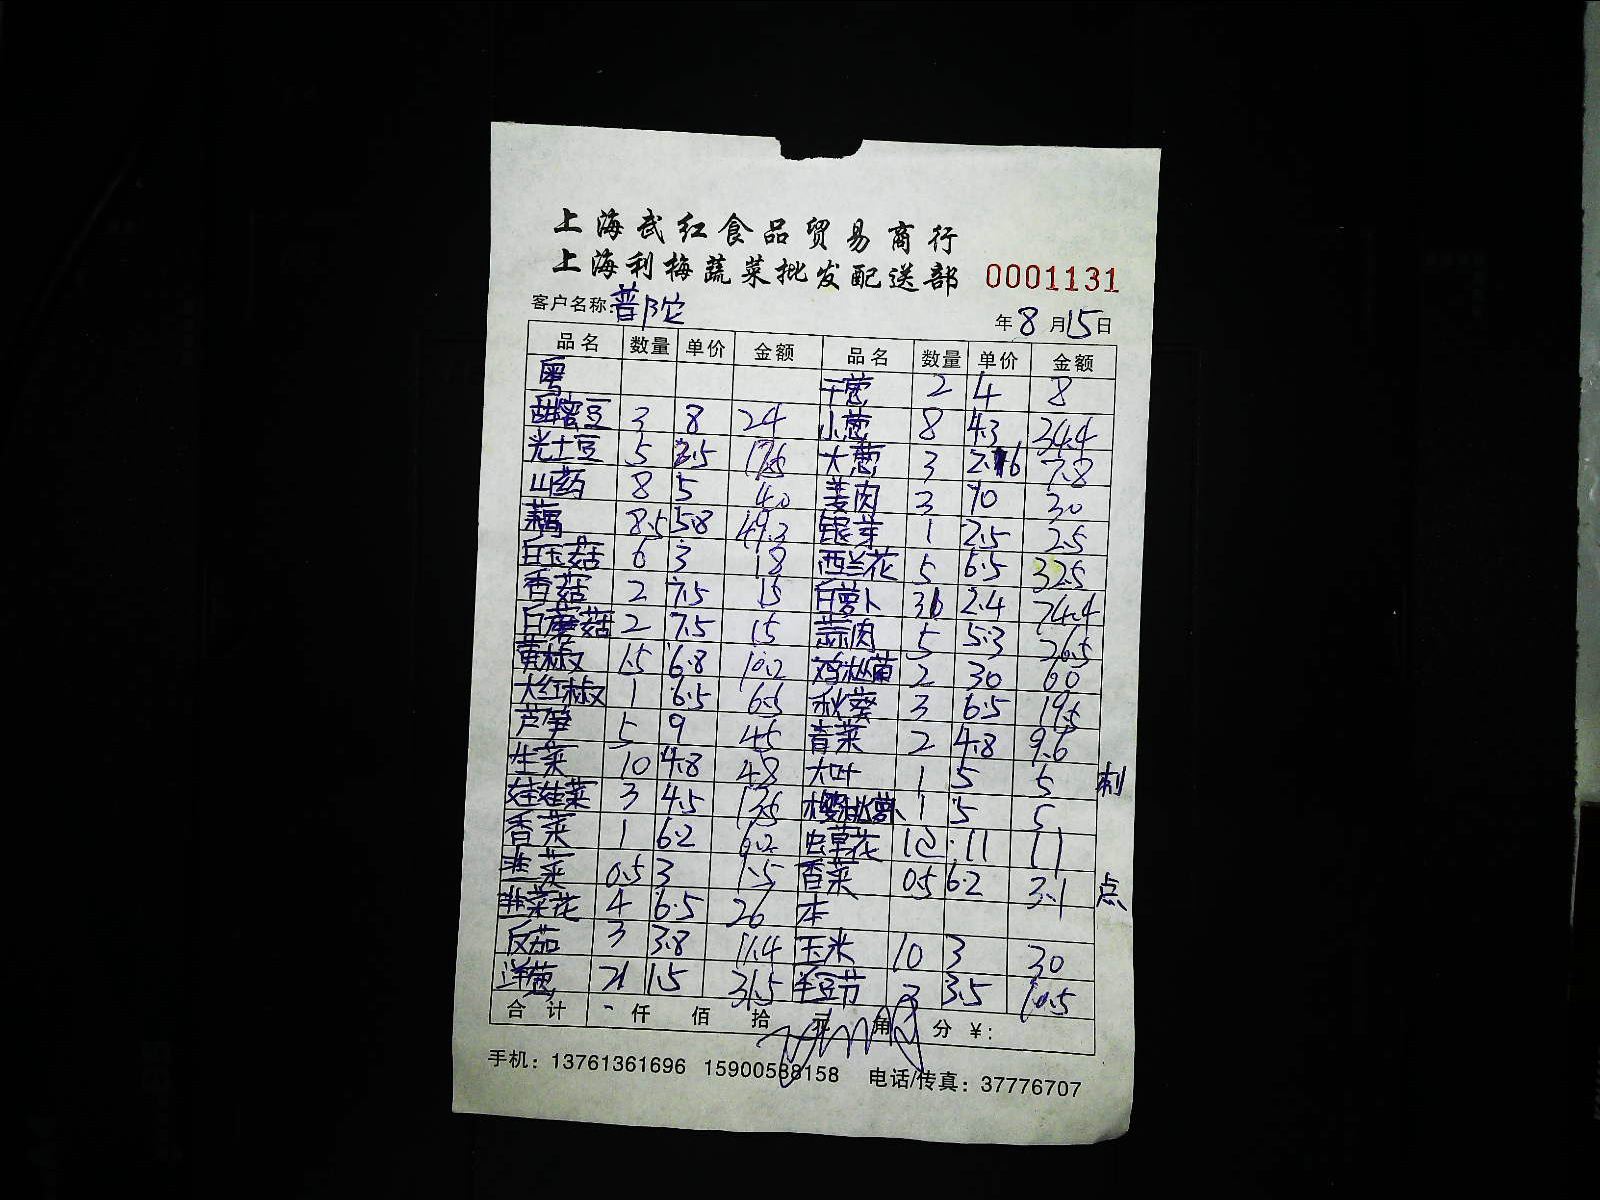 上海武红食品贸易商行
上海利梅蔬菜批发配送部 0001131
客户名称:普陀 年8月15日
品名 数量 单价 金额 品名 数量 单价 金额
粤 干葱 2 4 8
甜蜜豆 3 8 24 小葱 8 4.3 34.4
光土豆 5 3.5 17.5 大葱 3 2.6 7.8
山药 8 5 40 姜肉 3 10 30
藕 8.5 5.8 49.3 银芽 1 2.5 2.5
白玉菇 6 3 18 西兰花 5 6.5 32.5
香菇 2 7.5 15 白萝卜 31 2.4 74.4
白蘑菇 2 7.5 15 蒜肉 5 5.3 26.5
黄椒 1.5 6.8 10.2 鸡枞菌 2 30 60
大红椒 1 6.5 6.5 秋葵 3 6.5 19.5
芦笋 5 9 45 青菜 2 4.8 9.6
生菜 10 4.8 48 大叶 1 5 5 刺
娃娃菜 3 4.5 13.5 樱桃萝卜 1 5 5
香菜 1 6.2 6.2 虫草花 1 11 11
韭菜 0.5 3 1.5 香菜 0.5 6.2 3.1 点
韭菜花 4 6.5 26 本
反茄 3 3.8 11.4 玉米 10 3 30
洋葱 21 1.5 31.5 毛豆节 3 3.5 10.5
合计 仟 佰 拾 元 角 分 ¥:
手机：13761361696 15900588158 电话/传真：37776707